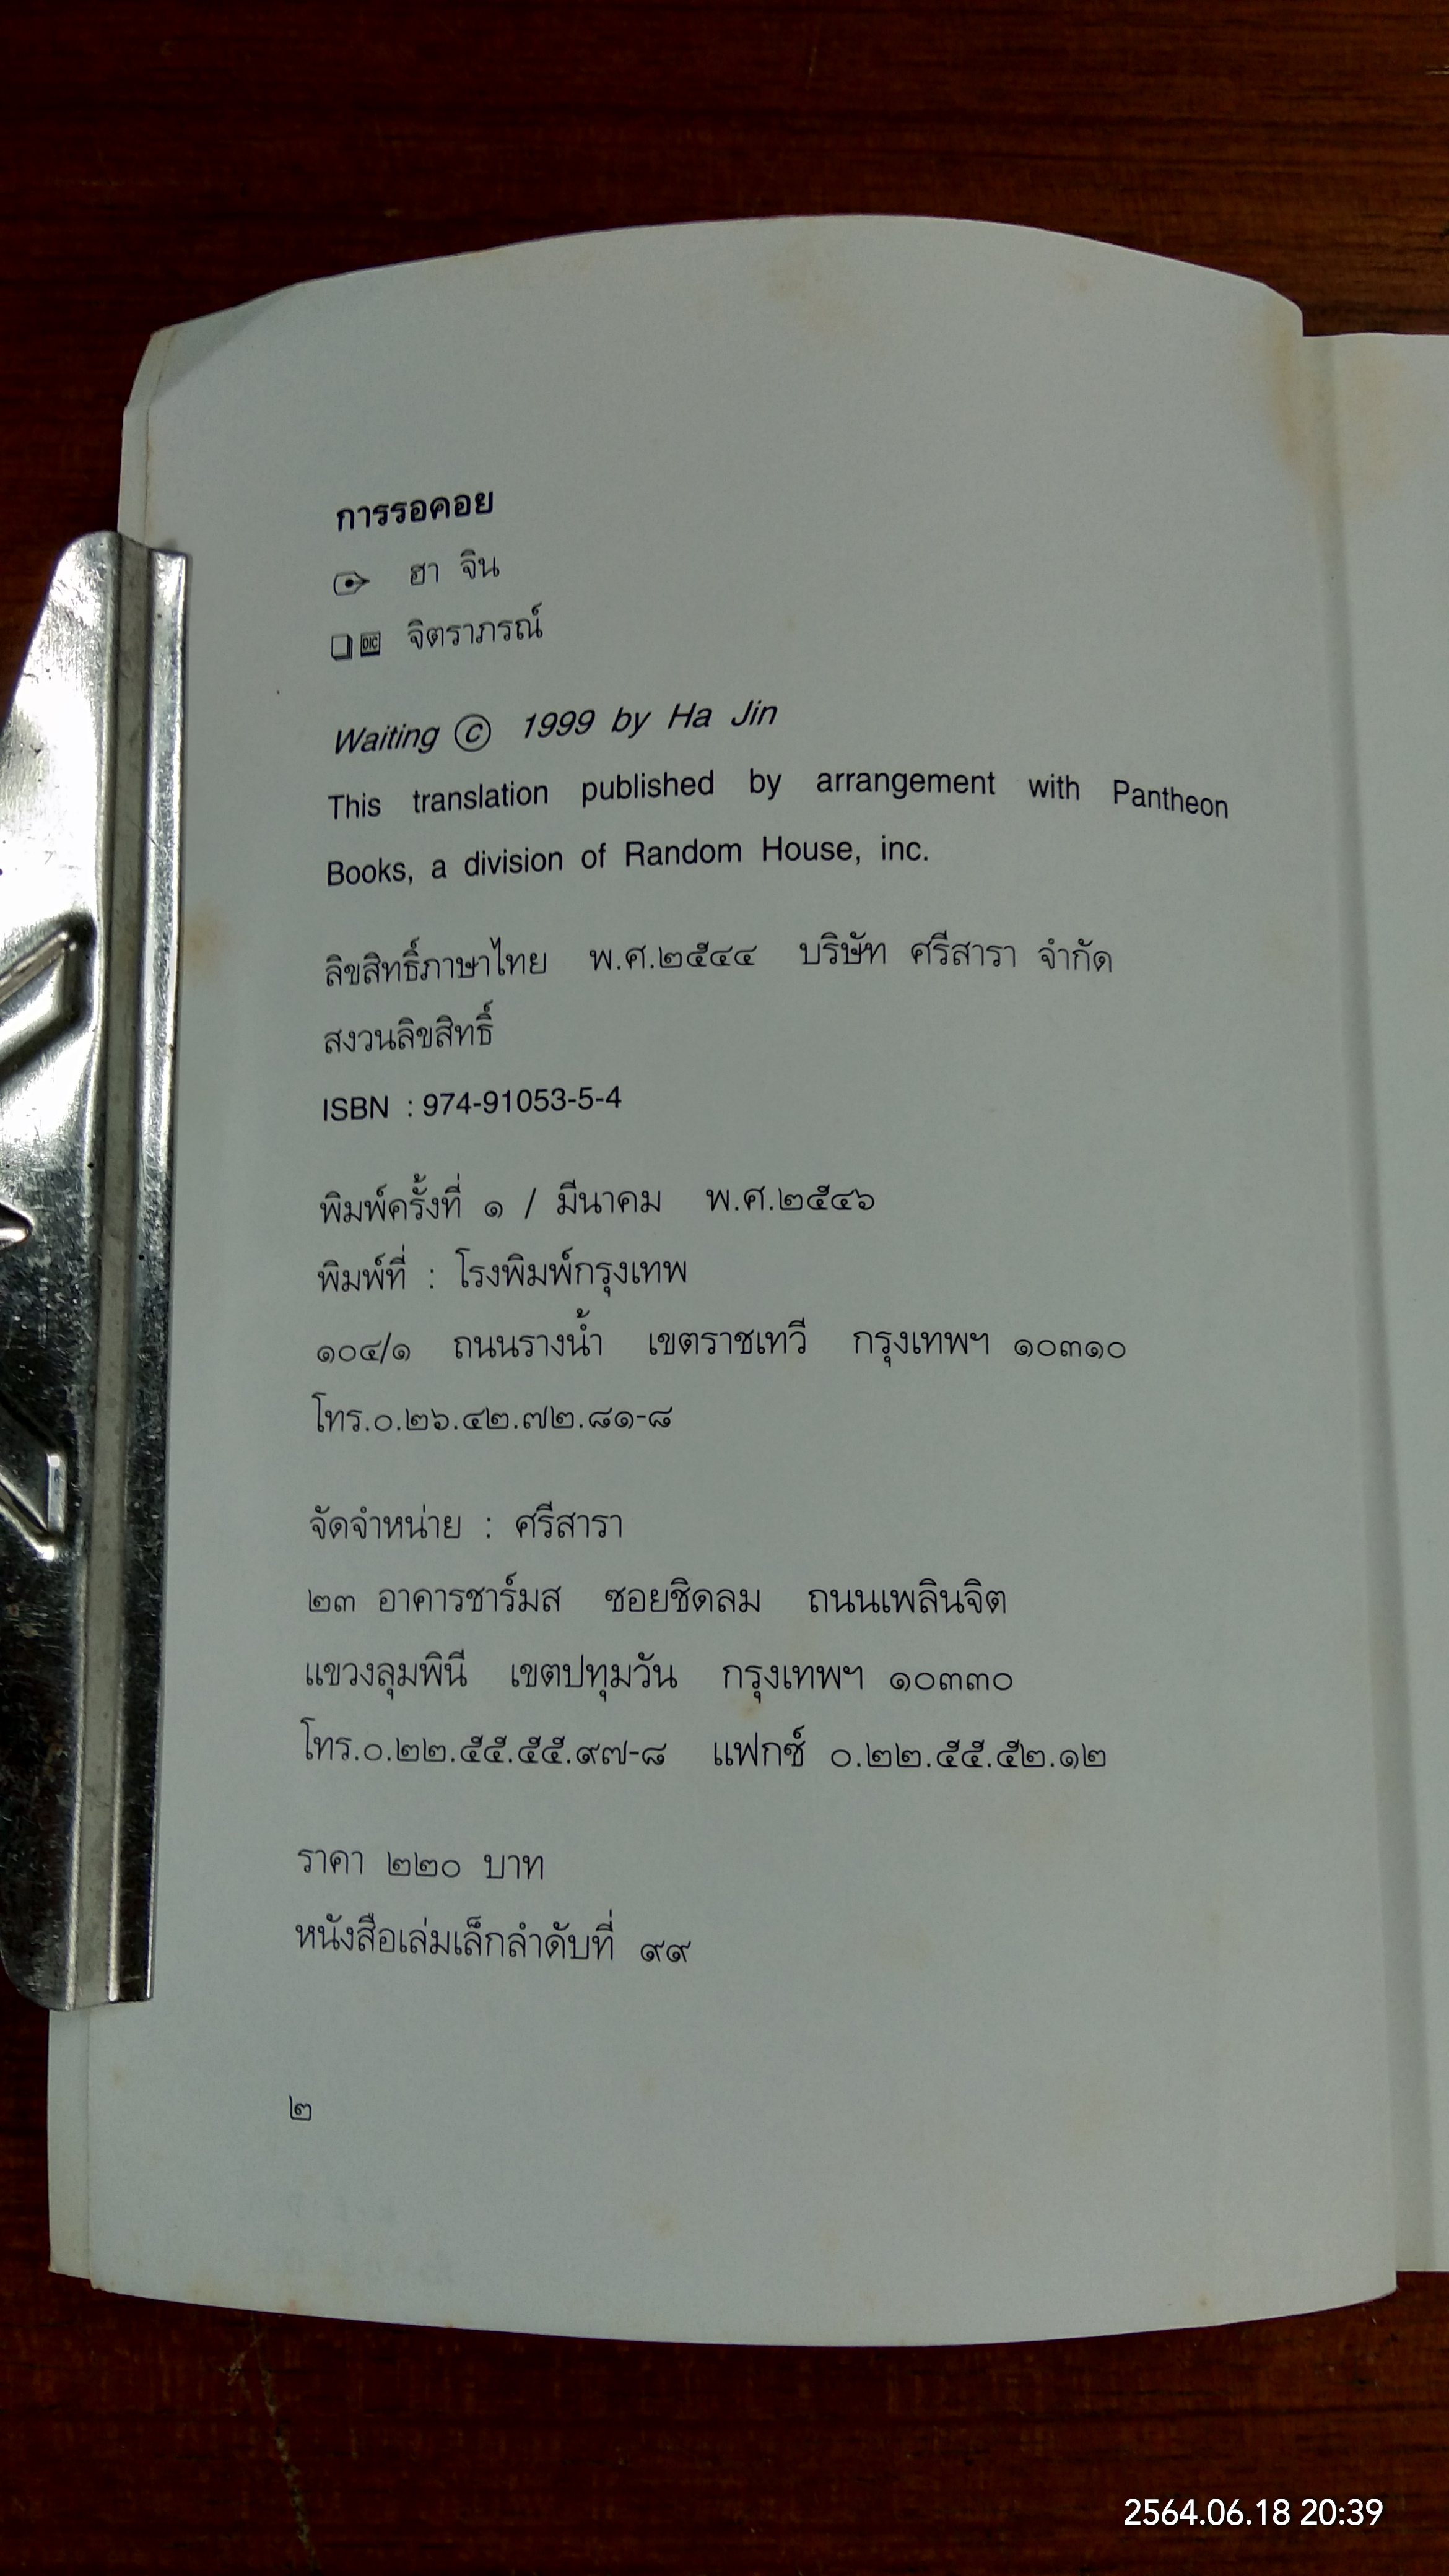 การรอคอย
ฮา จิน
DIC จิตราภรณ์
Waiting © 1999 by Ha Jin
This translation published by arrangement with Pantheon
Books, a division of Random House, inc.
ลิขสิทธิ์ภาษาไทย พ.ศ.๒๕๔๔ บริษัท ศรีสารา จำกัด
สงวนลิขสิทธิ์
ISBN : 974-91053-5-4
พิมพ์ครั้งที่ ๑ / มีนาคม พ.ศ.๒๕๔๖
พิมพ์ที่ : โรงพิมพ์กรุงเทพ
๑๐๔/๑ ถนนรางน้ำ เขตราชเทวี กรุงเทพฯ ๑๐๓๑๐
โทร.๐.๒๖.๔๒.๗๒.๘๑-๘
จัดจำหน่าย : ศรีสารา
๒๓ อาคารชาร์มส ซอยชิดลม ถนนเพลินจิต
แขวงลุมพินี เขตปทุมวัน กรุงเทพฯ ๑๐๓๓๐
โทร.๐.๒๒.๕๕.๕๕.๙๗-๘ แฟกซ์ ๐.๒๒.๕๕.๕๒.๑๒
ราคา ๒๒๐ บาท
หนังสือเล่มเล็กลำดับที่ ๙๙
๒
2564.06.18 20:39